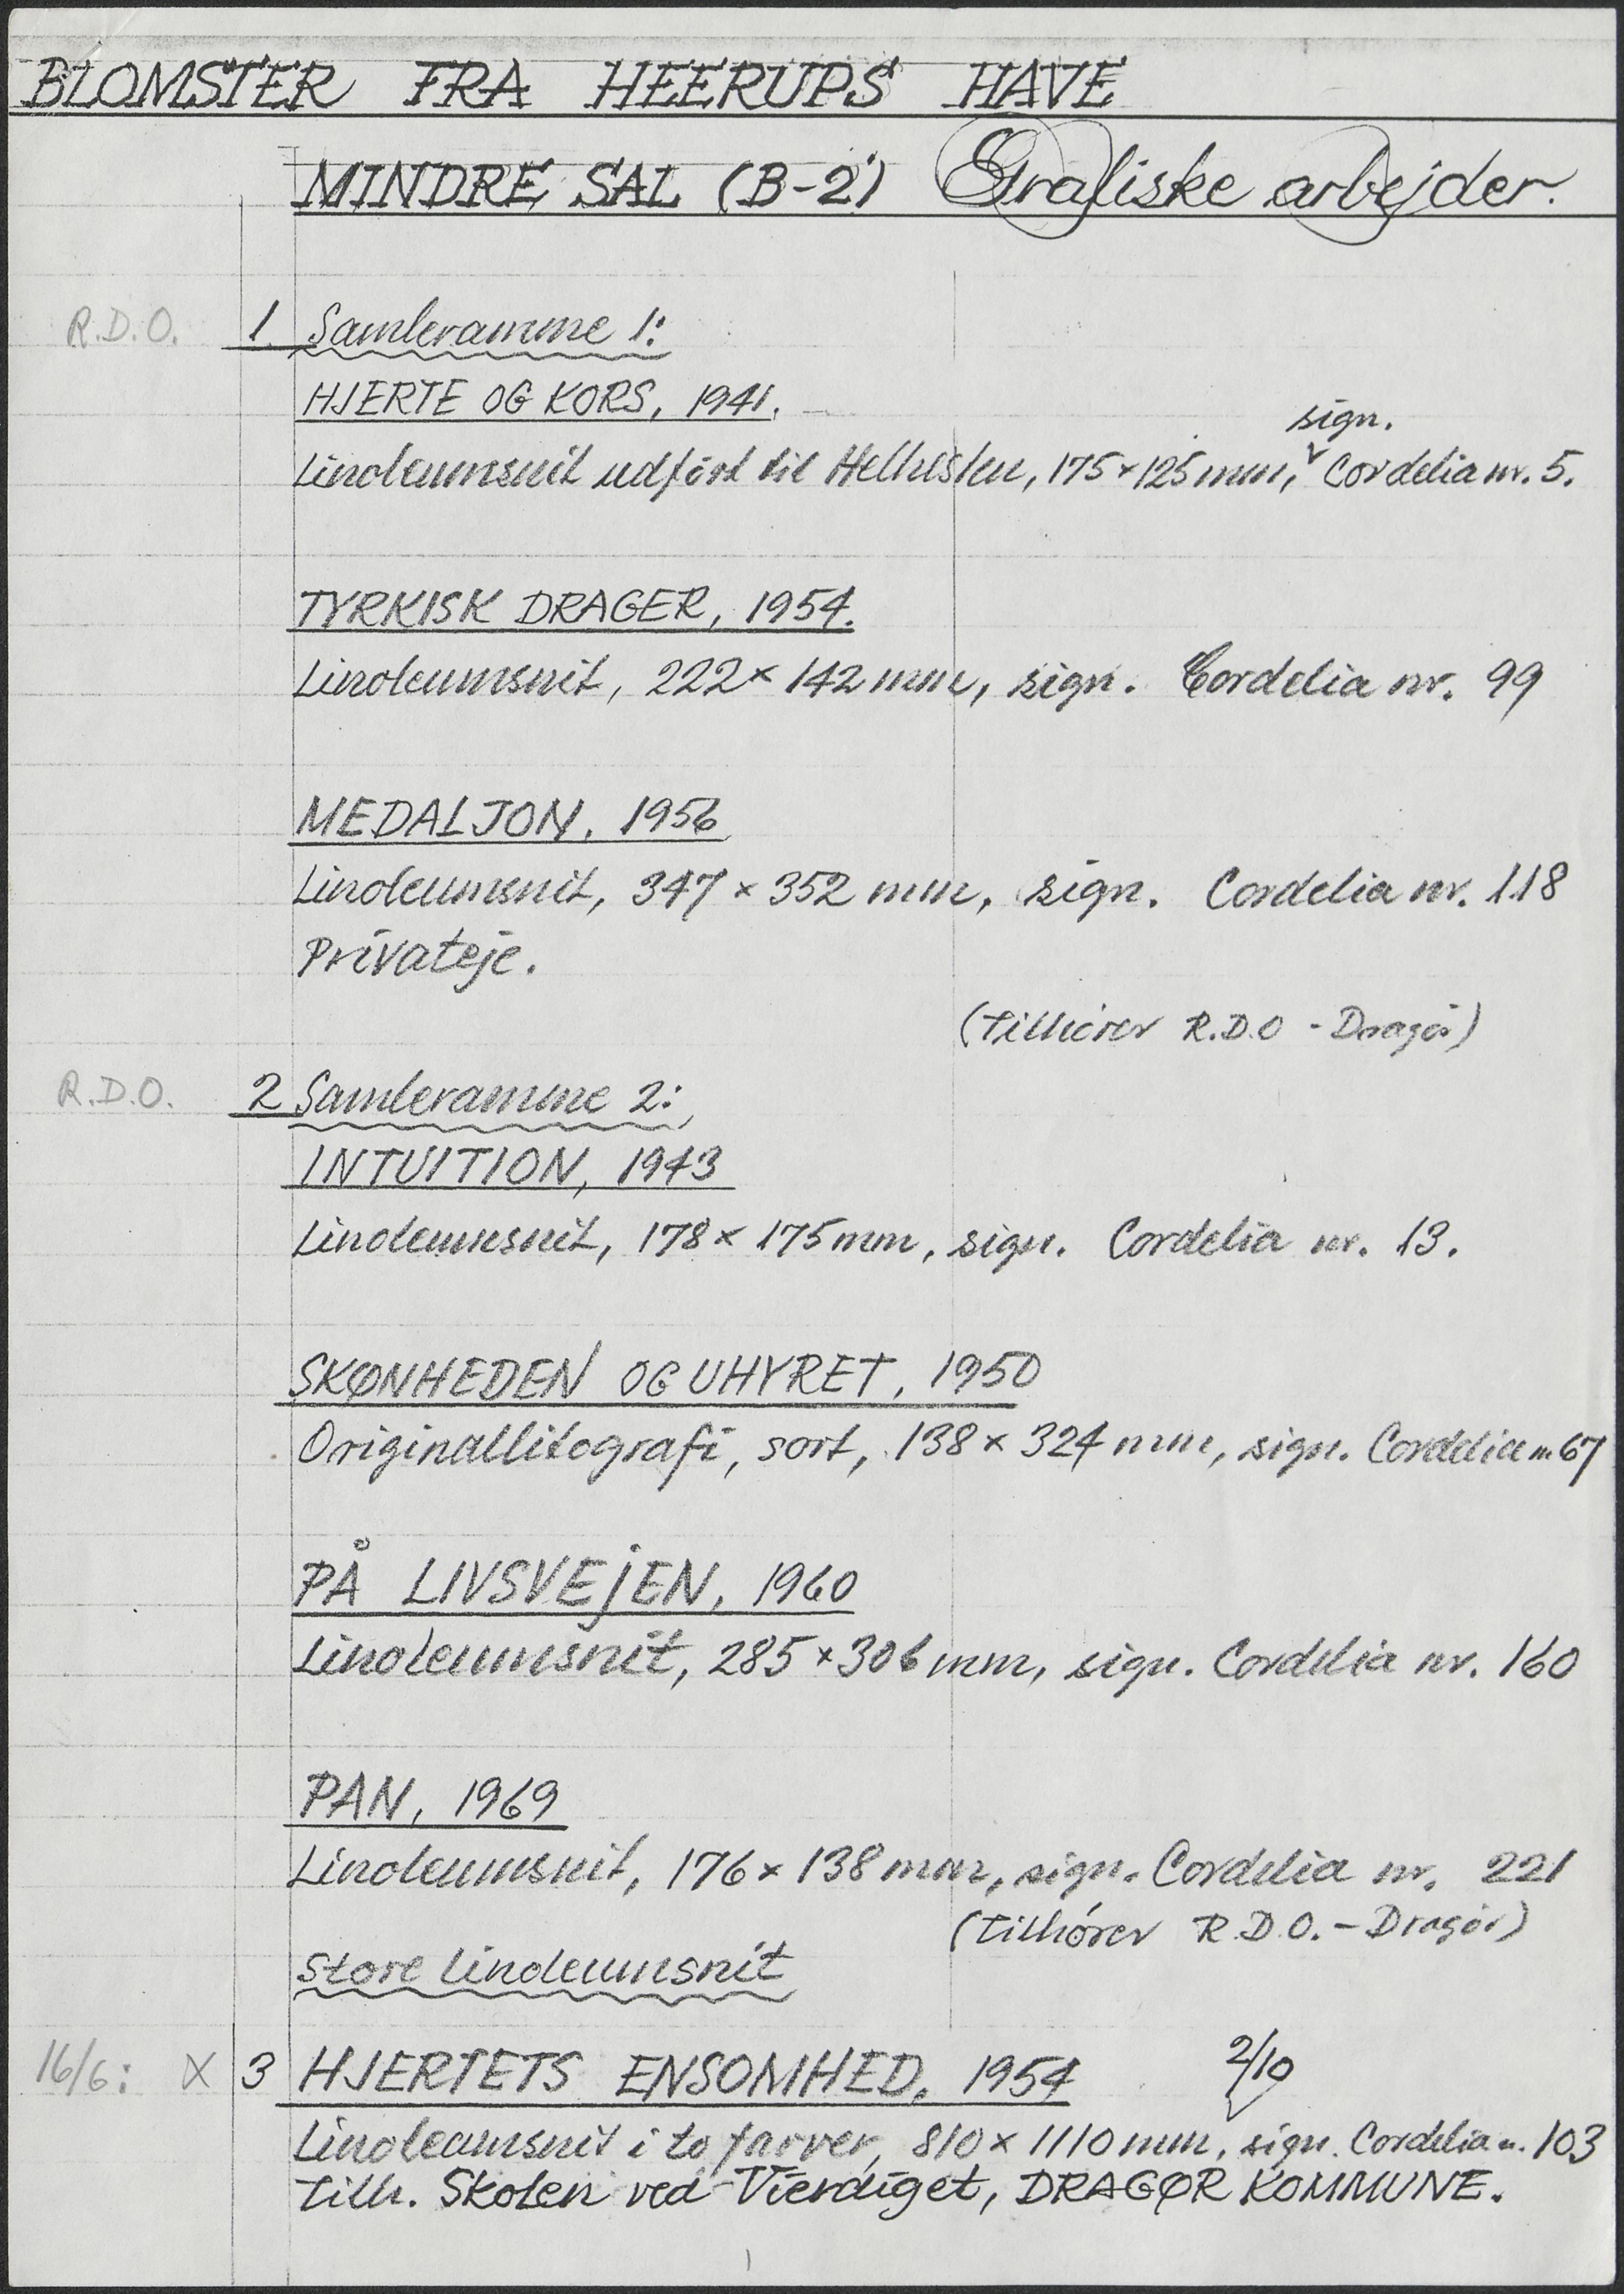 BLOMSTER FRA HEERUPS HAVE
MINDRE SAL (B-2) Grafiske arbejder.
R.D.O. 1. Samleramme 1:
HJERTE OG KORS, 1941.
sign.
Linoleumsnit udført til Helhesten, 175 × 125 mm, Cordelia nr. 5.
TYRKISK DRAGER, 1954.
Linoleumsnit, 222 × 142 mm, sign. Cordelia nr. 99
MEDALJON, 1956
Linoleumsnit, 347 × 352 mm, sign. Cordelia nr. 118
Privateje.
(tilhører R.D.O - Dragør)
R.D.O. 2 Samleramme 2:
INTUITION, 1943
Linoleumsnit, 178 × 175 mm, sign. Cordelia nr. 13.
SKØNHEDEN OG UHYRET, 1950
Originallitografi, sort, 138 × 324 mm, sign. Cordelia nr. 67
PÅ LIVSVEJEN, 1960
Linoleumsnit, 285 × 306 mm, sign. Cordelia nr. 160
PAN, 1969
Linoleumsnit, 176 × 138 mm, sign. Cordelia nr. 221
(tilhører R.D.O. - Dragør)
Store linoleumsnit
16/6: X 3 HJERTETS ENSOMHED, 1954 2/10
Linoleumsnit i to farver, 810 × 1110 mm, sign. Cordelia n. 103
Tilh. Skolen ved Vierdiget, DRAGØR KOMMUNE.